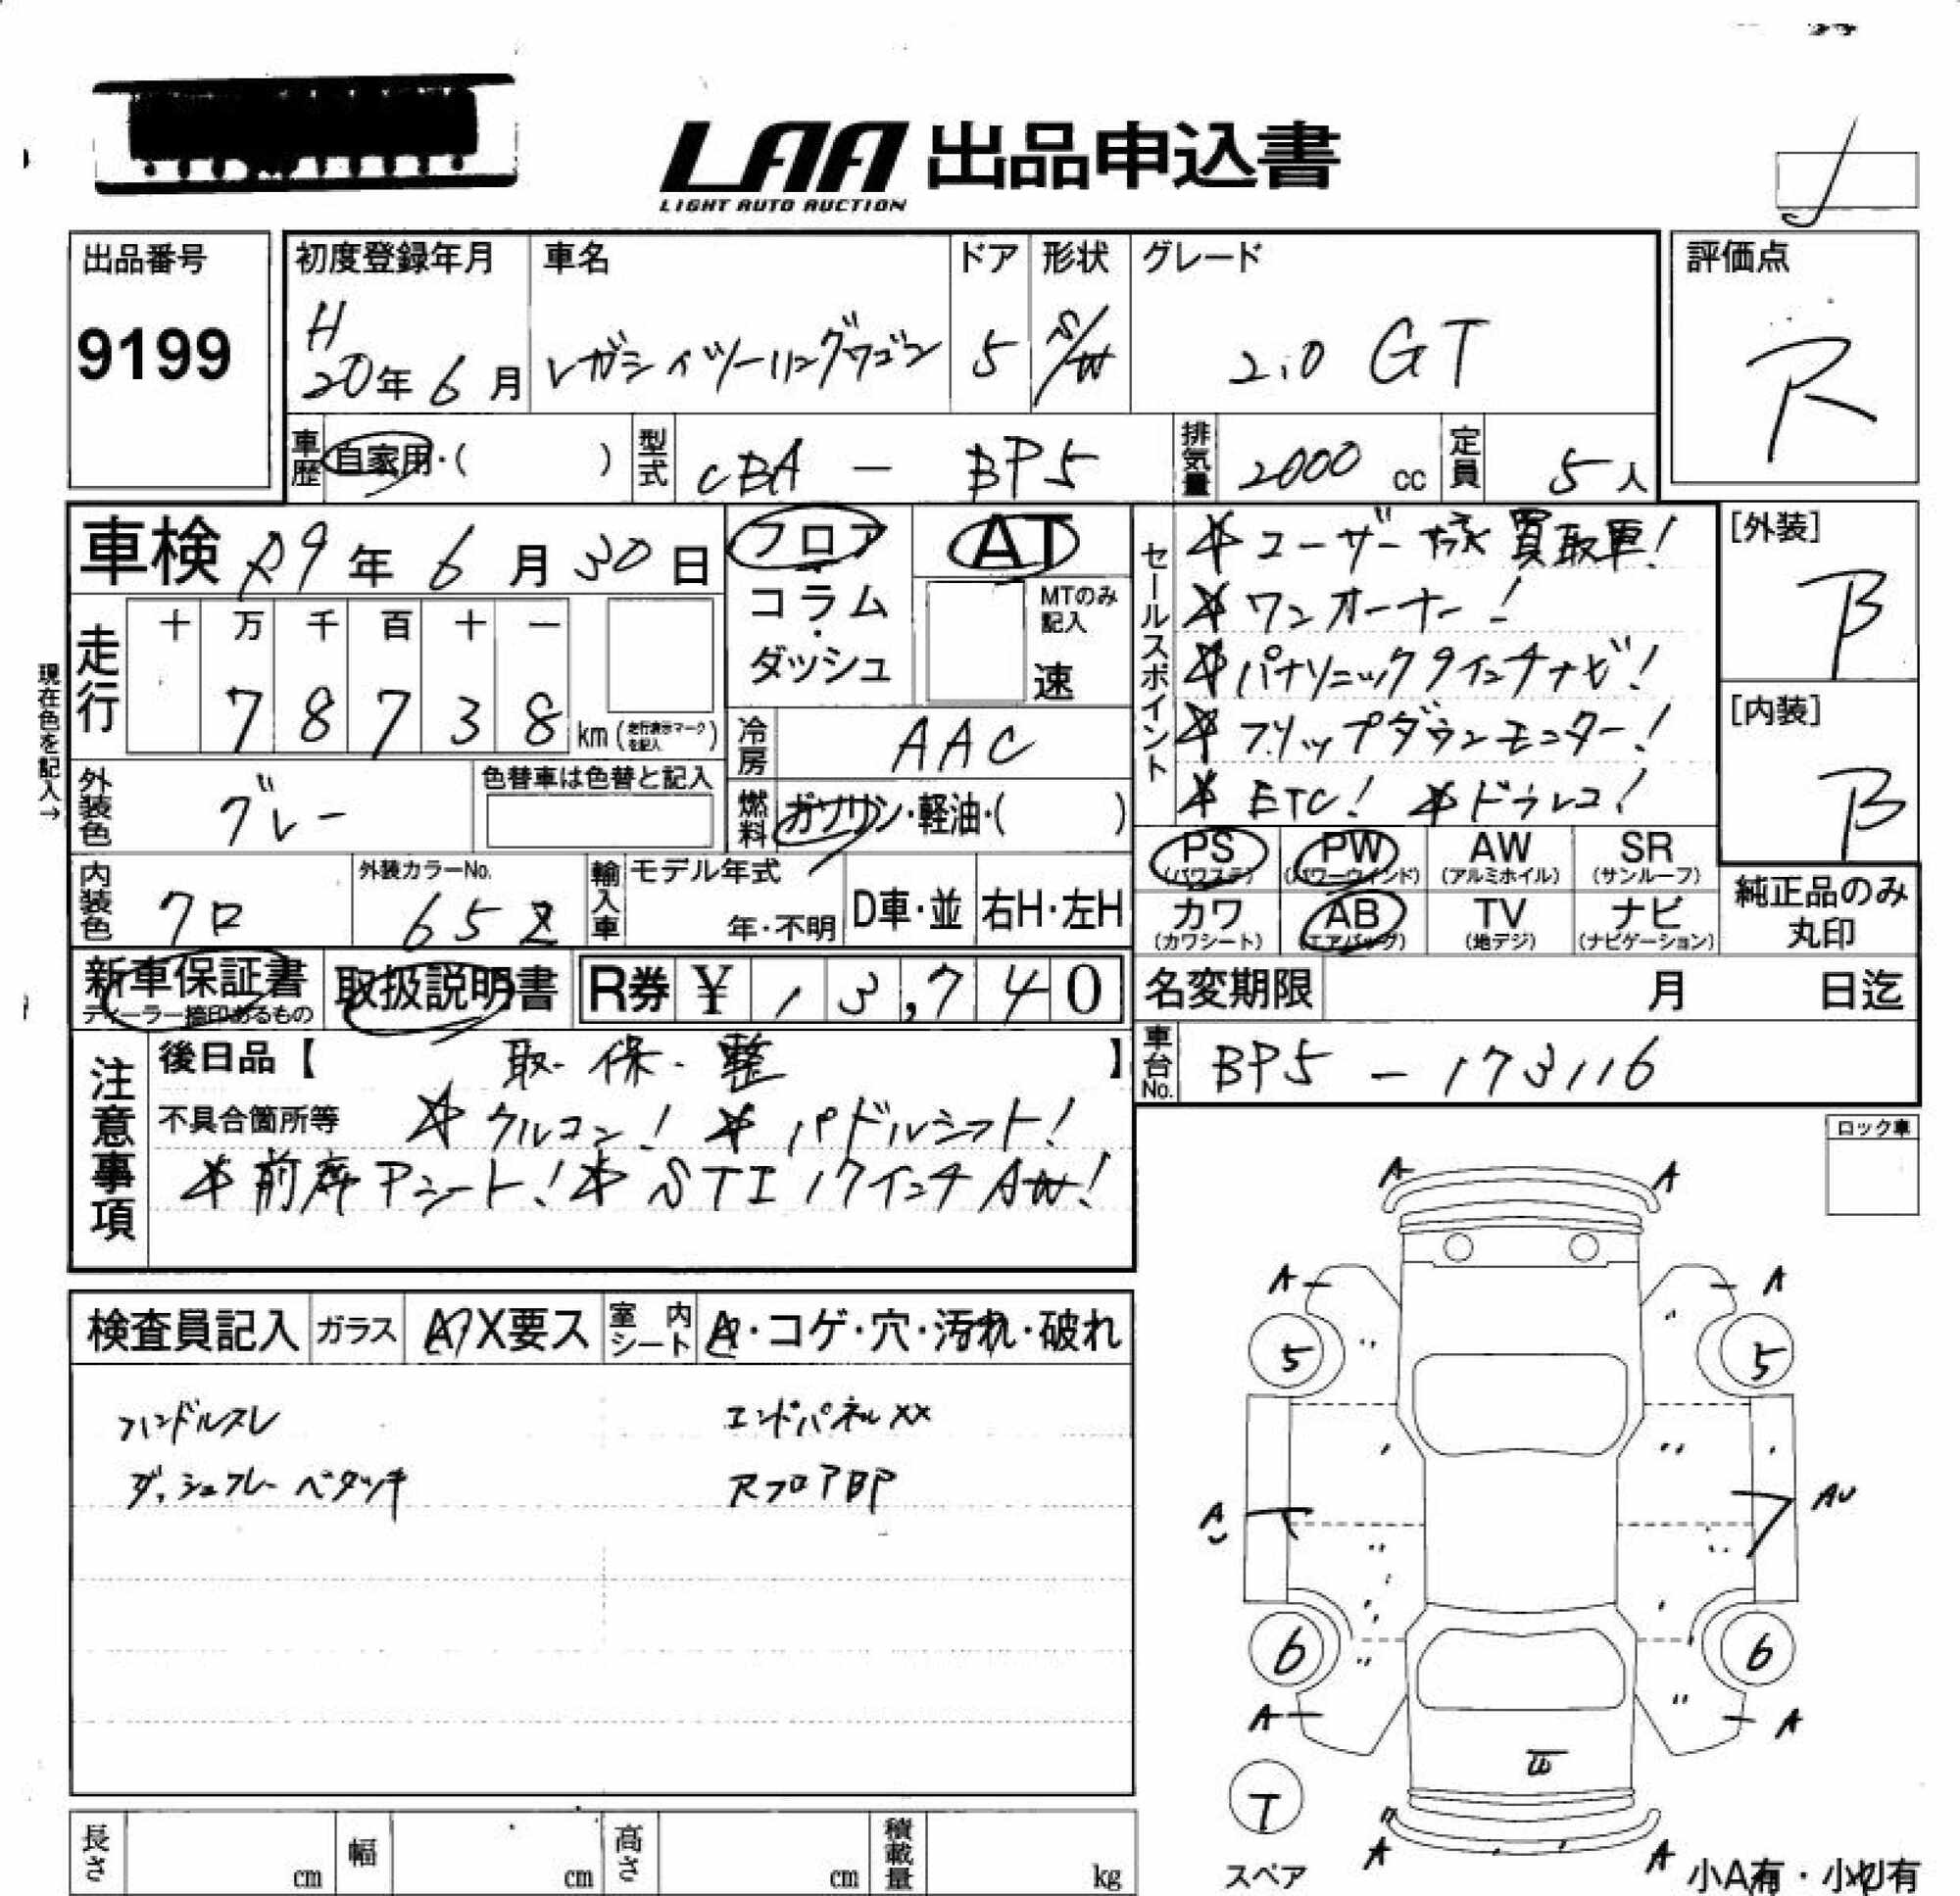 LAA 出品申込書
LIGHT AUTO AUCTION
出品番号
9199
初度登録年月
H
20年 6月
車名
レガシィツーリングワゴン
ドア
5
形状
S/W
グレード
2.0 GT
評価点
R
車歴
自家用・( )
型式
CBA - BP5
排気量
2000 cc
定員
5人
車検 R9年 6月 30日
フロア
・
コラム
・
ダッシュ
AT
MTのみ
記入
速
セールスポイント
☆ユーザー様買取車!
☆ワンオーナー!
☆パナソニック9インチナビ!
☆フリップダウンモニター!
☆ETC! ☆ドラレコ!
[外装]
B
[内装]
B
現在色を記入→
走行
十 万 千 百 十 一
7 8 7 3 8 km(走行表示マークを記入)
冷房
AAC
外装色
グレー
色替車は色替と記入
燃料
ガソリン・軽油・( )
PS
(パワステ)
PW
(パワーウインド)
AW
(アルミホイル)
SR
(サンルーフ)
カワ
(カワシート)
AB
(エアバッグ)
TV
(地デジ)
ナビ
(ナビゲーション)
純正品のみ
丸印
内装色
クロ
外装カラーNo.
652
輸入車
モデル年式
年・不明
D車・並
右H・左H
新車保証書
ディーラー捺印あるもの
取扱説明書
R券 ¥ 13,740
名変期限 月 日迄
車台No.
BP5 - 173116
注意事項
後日品【 取.保.整 】
不具合箇所等 ☆クルコン! ☆パドルシフト!
☆前席Pシート!☆STI 17インチAW!
ロック車
検査員記入
ガラス
A X要ス
室内シート
A・コゲ・穴・汚れ・破れ
ハンドルスレ
エンドパネルXX
ダッシュフレーベタツキ
RフロアBP
A
A
A
A
5
5
A
AU
6
6
A
A
T
スペア
A
A
小A有・小凹有
長さ cm
幅 cm
高さ cm
積載量 kg